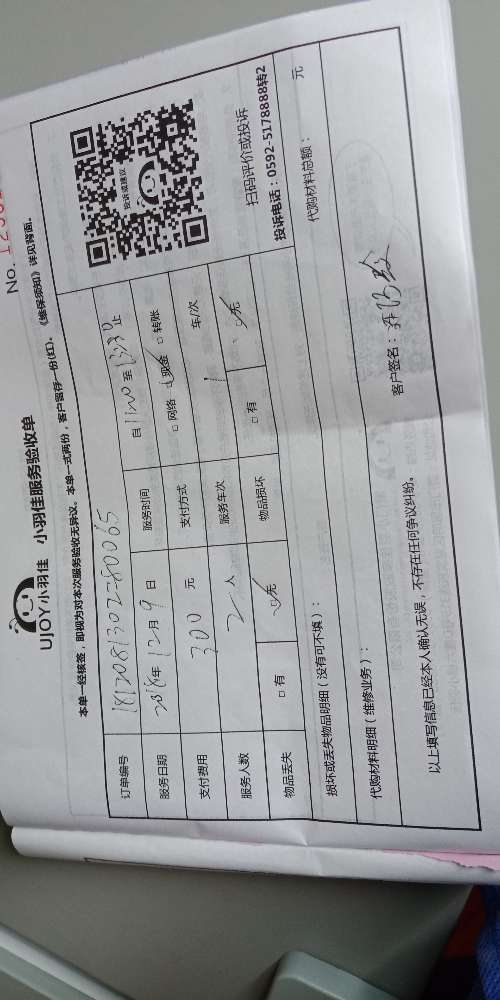 No.
UJOY小羽佳 小羽佳服务验收单
本单一经核签，即视为对本次服务验收无异议。本单一式两份，客户留存一份(红)。《维保须知》详见背面。
订单编号 1812081302280065
服务日期 2018年12月9日 服务时间 自11:00至13:30止
支付费用 300元 支付方式 □网络 □现金 □转账
服务人数 2人 服务车次 1 车/次
物品丢失 □有 □无 物品损坏 □有 □无
投诉或建议
扫码评价或投诉
投诉电话：0592-5178888转2
损坏或丢失物品明细（没有可不填）：
代购材料明细（维修业务）： 代购材料总额： 元
以上填写信息已经本人确认无误，不存在任何争议纠纷。 客户签名：